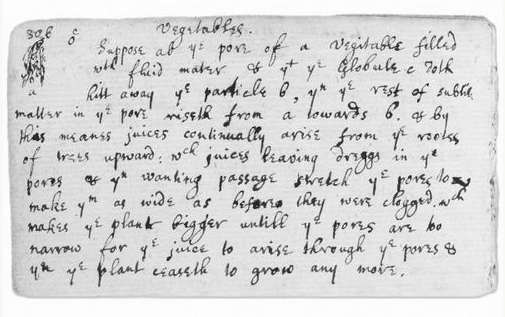 306 6 Vegetables.
Suppose ab yᵉ pore of a Vegitable filled
wᵗʰ fluid mater & yᵗ yᵉ Globule c doth
a hitt away yᵉ particle b, yⁿ yᵉ rest of subtile
matter in yᵉ pore riseth from a towards b. & by
this meanes juices continually arise from yᵉ rootes
of trees upward: wᶜʰ juices leaving dreggs in yᵉ
pores & yⁿ wanting passage stretch yᵉ pores to
make yᵐ as wide as before they were clogged. wᶜʰ
makes yᵉ plant bigger untill yᵉ pores are too
narrow for yᵉ juice to arise through yᵉ pores &
yⁿ yᵉ plant ceaseth to grow any more.